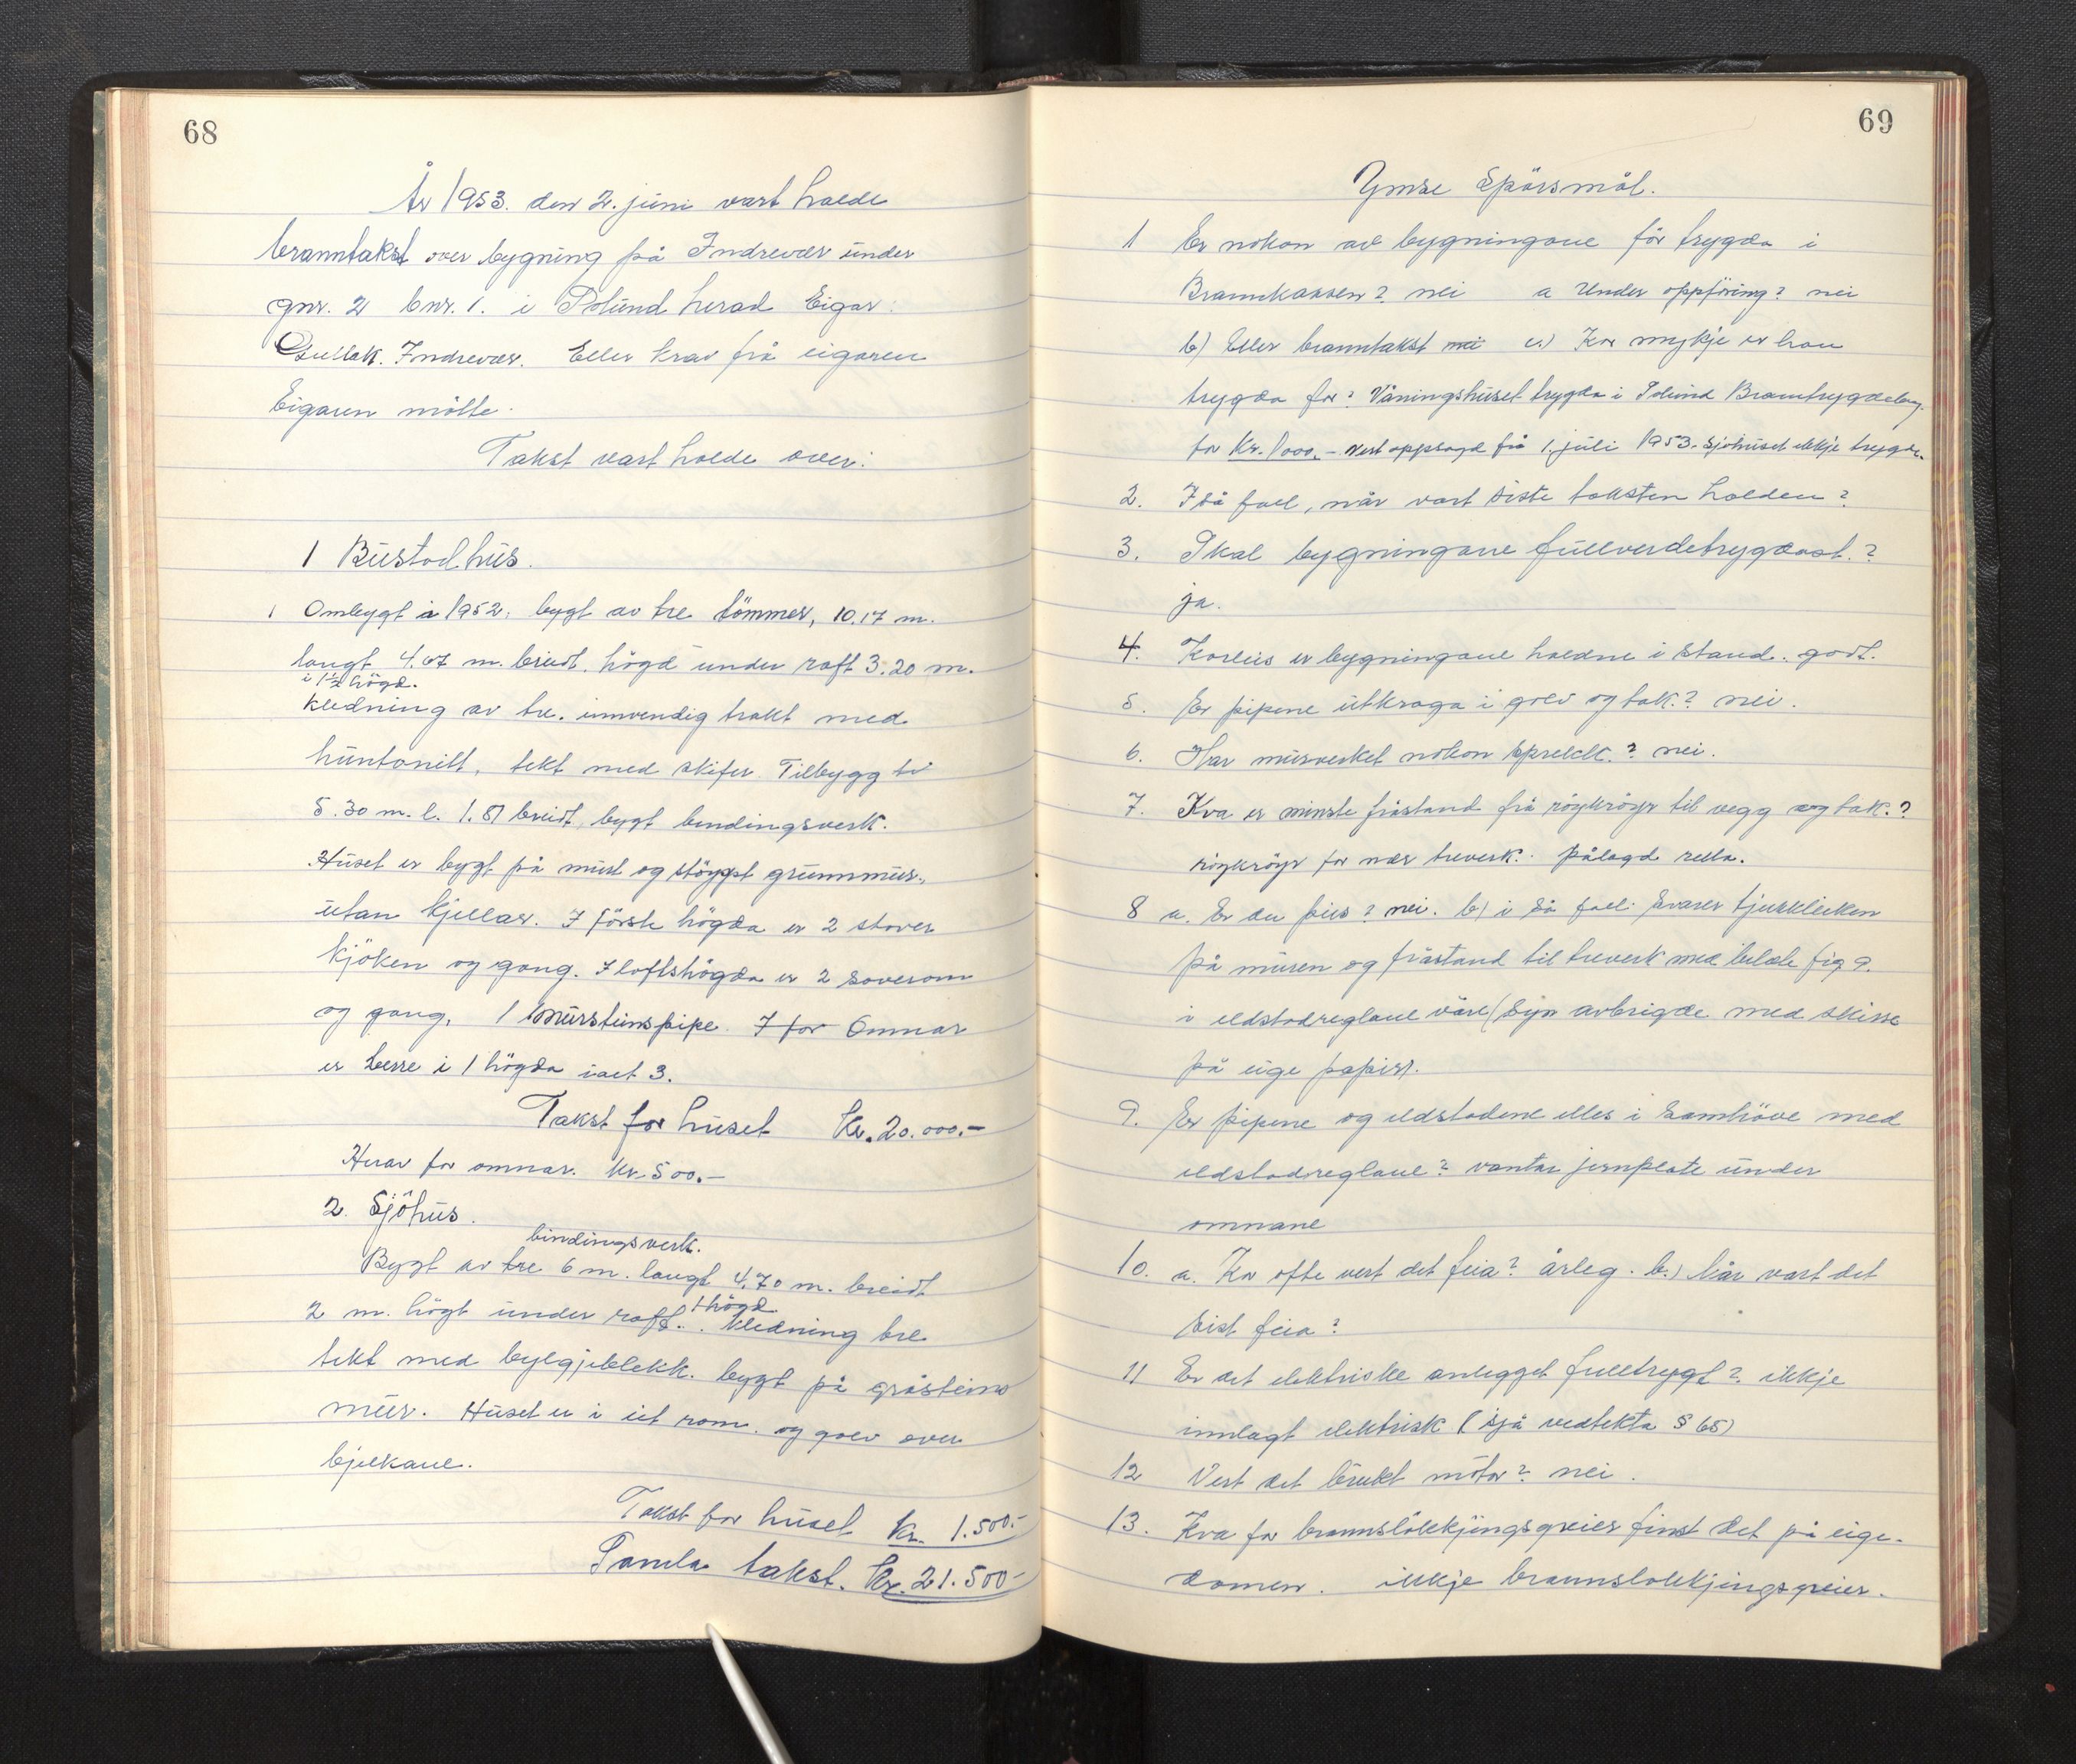 68
År 1953. den 2. juni vart halde
branntakst over bygning på Indrevær under
gnr. 2 bnr. 1. i Solund herad Eigar:
Gullak. Indrevær. Etter krav frå eigaren
Eigaren møtte.
Takst vart halde over:
1 Bustadhus.
1 Ombygt i 1952, bygt av tre tömmer, 10.17 m.
langt 4.67 m. breidt. högd under raft 3.20 m.
i 1½ högd.
kledning av tre. innvendig trekt med
huntonitt, tekt med skifer. Tilbygg
5.30 m. l. 1.81 breidt, bygt bendingsverk.
Huset er bygt på murt og stöypt grunnmur,
utan kjellar. I förste högda er 2 stover
kjöken og gang. I loftshögda er 2 soverom
og gang, 1 mursteinspipe. I for Omnar
er berre i 1 högda i alt 3.
Takst for huset Kr. 20.000.-
Herav for omnar. kr. 500.-
2. Sjöhus.
bindingsverk.
Bygt av tre 6 m. langt 4.70 m. breidt
1 högd
2 m. högt under raft. kledning tre
tekt med bylgjeblekk. bygt på gråsteins
mur. Huset er i eit rom. og golv over
bjelkane.
Takst for huset kr. 1.500.-
Samla takst. Kr. 21.500-
69
Ymse Spörsmål.
1 Er nokon av bygningane för trygda i
Brannkassen? nei a Under oppföring? nei
b) Eller branntakst nei c.) Kor mykje er han
trygda for? Våningshuset trygda i Solund Branntrygdelag.
for Kr. 1000.- vert oppsagd frå 1. juli 1953. Sjöhuset ikkje trygda.
2. I så fall, når vart siste taksten halden?
3. Skal bygningane fullverdetrygdast.?
ja.
4. Korleis er bygningane haldne i stand. godt.
5. Er pipene utkraga i golv og tak.? nei.
6. Har murverket nokon sprekk.? nei.
7. Kva er minste fråstand frå röykröyr til vegg og tak.?
röykröyr for nær treverk. pålagd retta.
8 a. Er du peis? nei. b) i så fall: svarer tjukkleiken
på muren og fråstand til treverk med bilde fig 9.
i eldstadreglane våre (Syn avbrigde med skisse
på eige papir).
9. Er pipene og eldstadene elles i samhöve med
eldstadreglane? vantar jernplate under
omnane
10. a. Kor ofte vert det feia? årleg. b.) Når vart det
sist feia?
11 Er det elektriske anlegget fulltrygt? ikkje
innlagt elektrisk (sjå vedtekta § 65)
12 Vert det brukt motor? nei.
13. Kva for brannslökkjingsgreier finst det på eige-
domen. ikkje brannslokkjingsgreier.